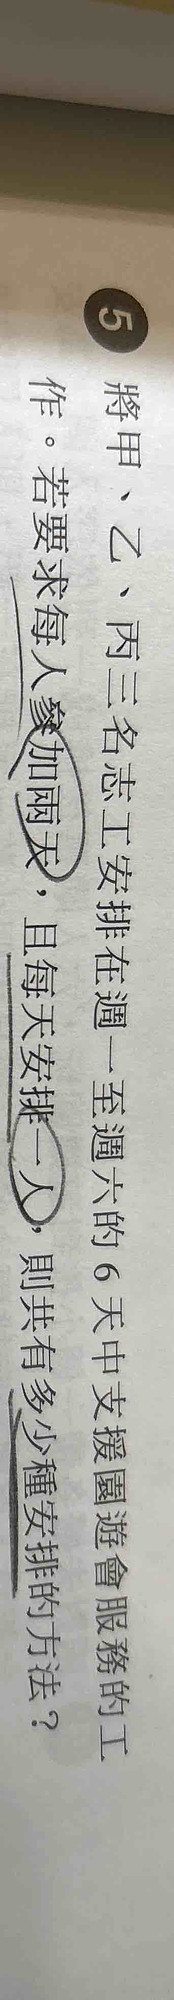 5 將甲、乙、丙三名志工安排在週一至週六的6天中支援園遊會服務的工
作。若要求每人參加兩天，且每天安排一人，則共有多少種安排的方法？